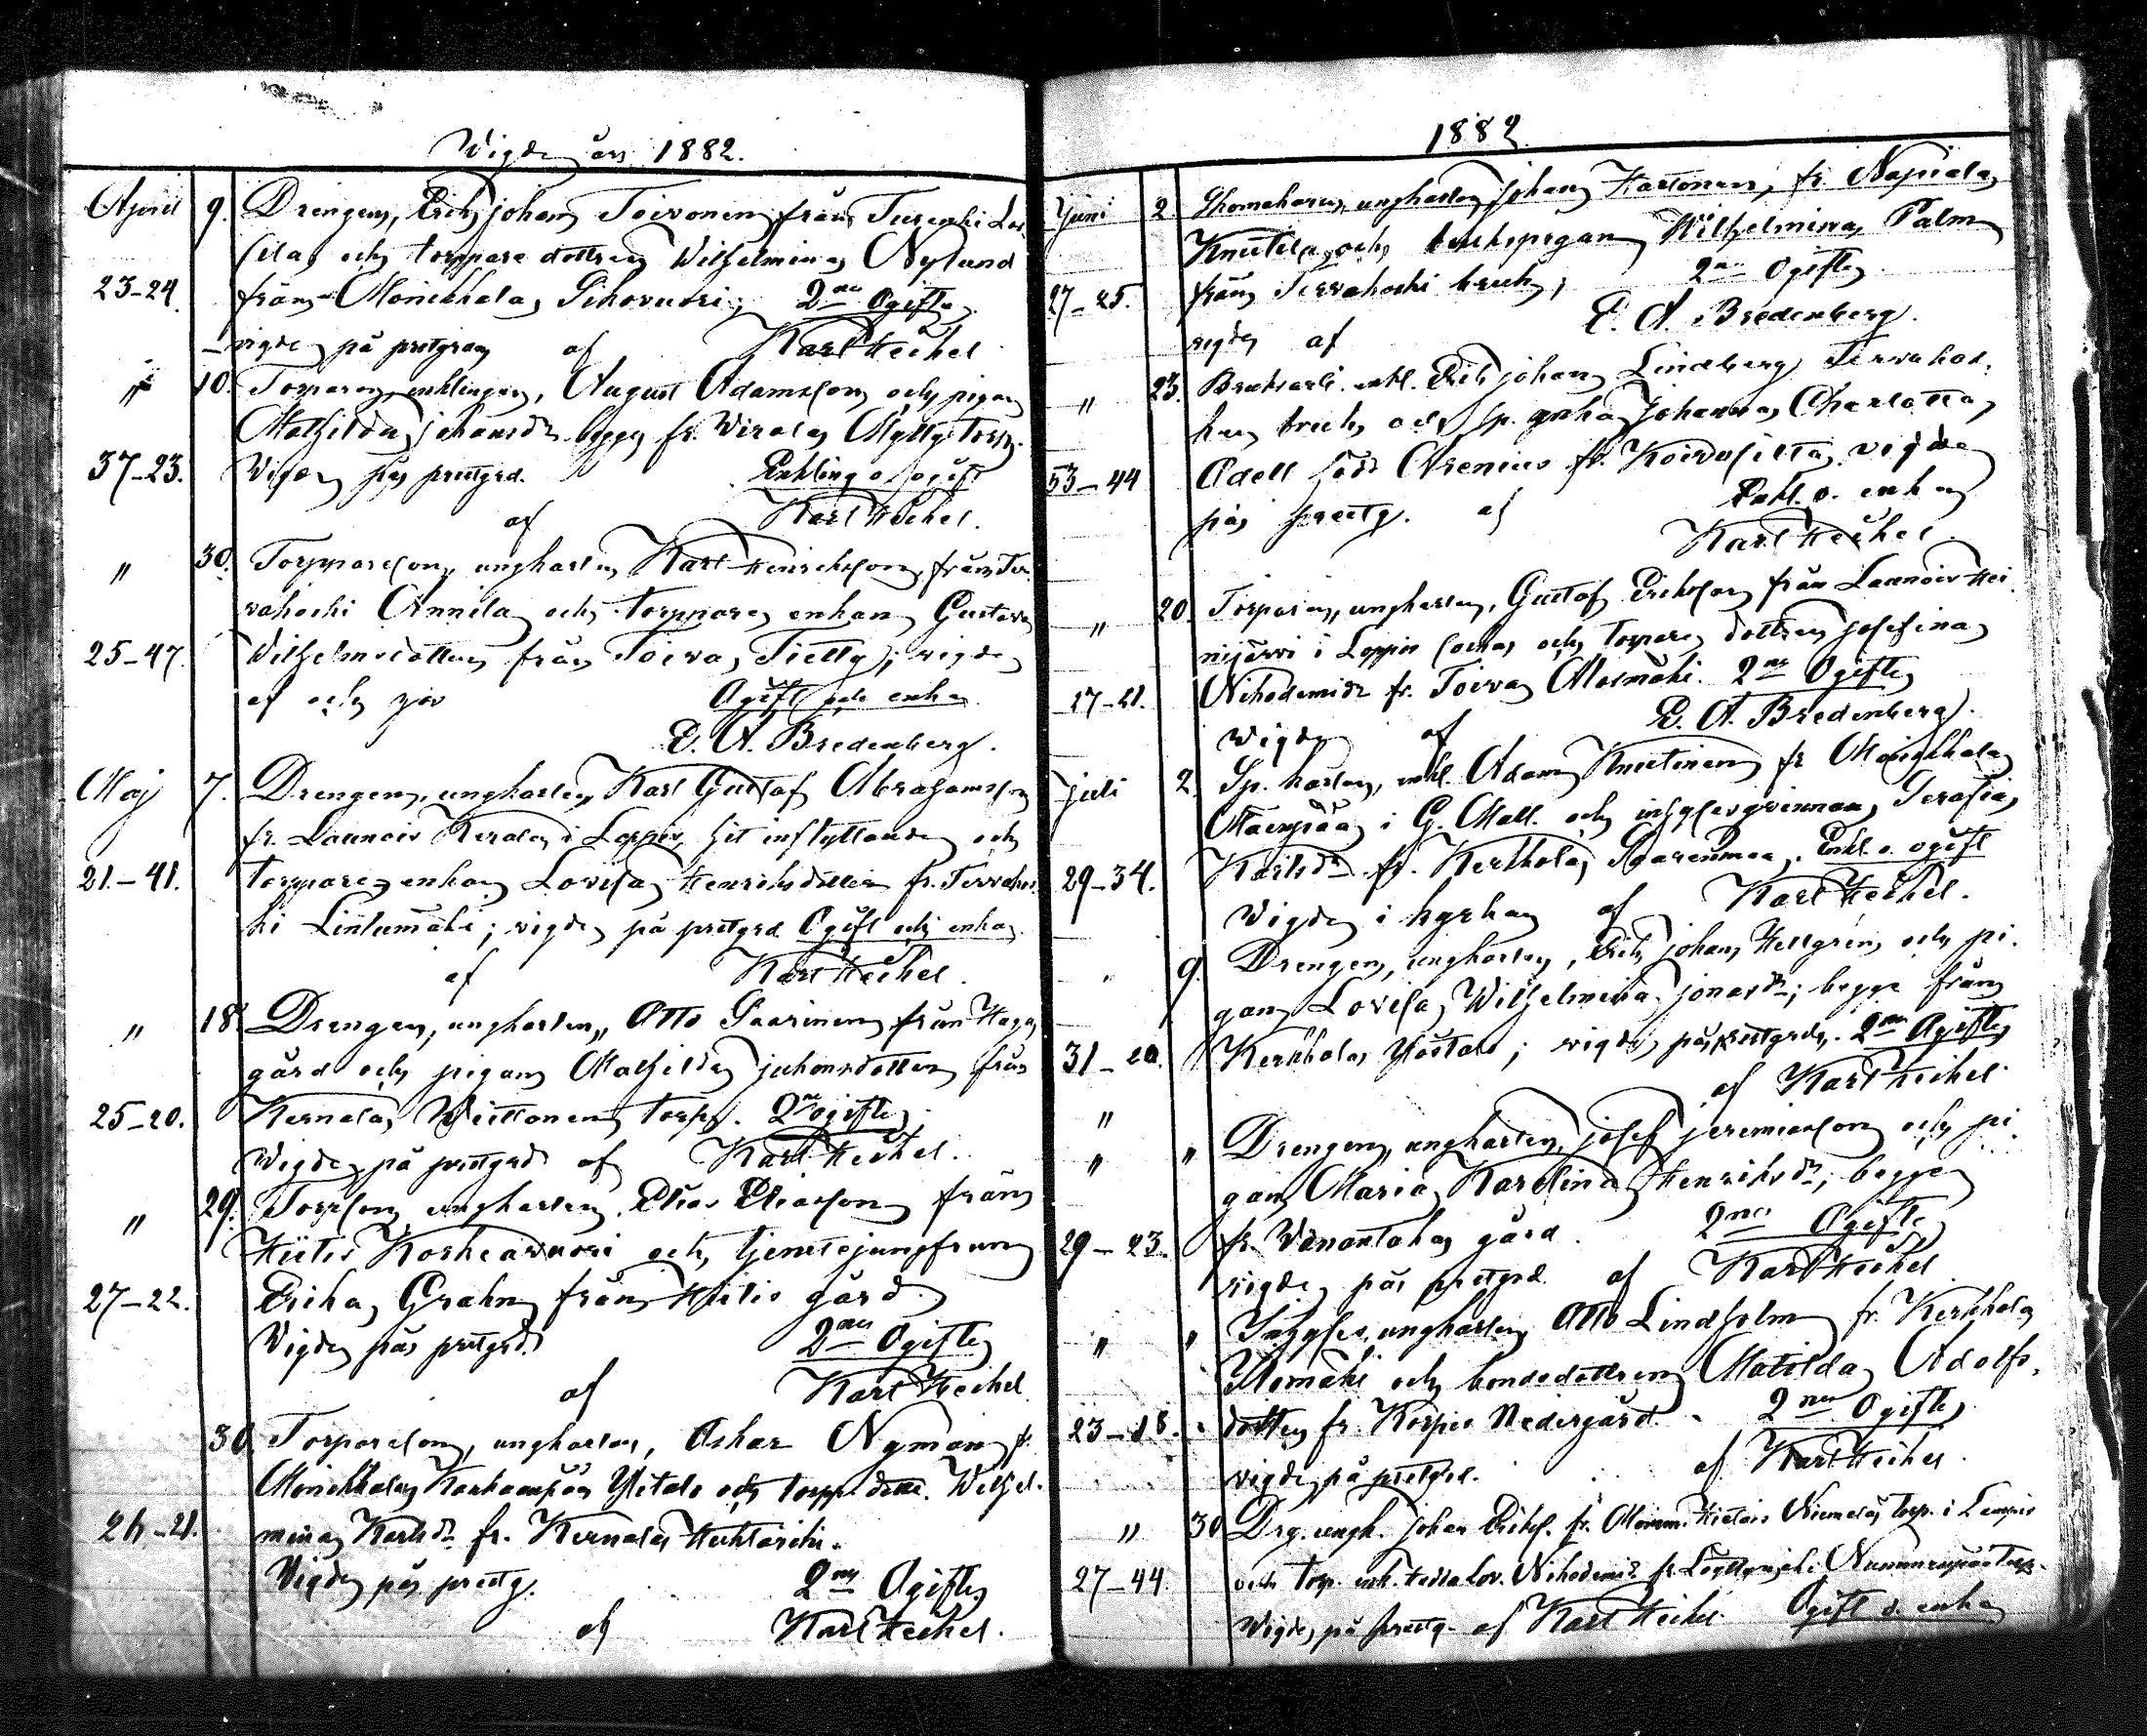 Vigde år 1882.
April 9. Drengen, Erik Johan Toivonen från Turenki Las
sila och torppare dottren Wilhelmina Nylund
23-24. från Monikkala Sihovuori; 2ne Ogifta
vigde på prstgrdn af Karl Heikel
" 10. Torparen, enklingen, August Adamsson och pigan
Mathilda Johansdr begge fr. Virala Mylly torp.
37-23. Vigde på prstgrd. Enkling o. ogift
af Karl Heikel.
" 30. Torpparesonen, ungkarlen Karl Henriksson, från Ter
vakoski Annila och torppare enkan Gustava
25-47. Wilhelmsdotter från Toivo, Tietty; vigde
af och på Ogift och enka
E. A. Bredenberg.
Maj 7. Drengen, ungkarlen, Karl Gustaf Abrahamsson
fr. Launois Kerala i Loppis, hit inflyttande och
21.-41. torppare enkan Lovisa Henriksdotter fr. Tervakos
ki Lintumäki; vigde på prstgrd Ogift och enka
af Karl Heikel.
" 18. Drengen, ungkarlen, Otto Saarinen från Haga
gård och pigan Mathilda Juhonsdotter från
25-20. Kernala, Wiittonen torp. 2ne ogifta
Vigde på prstgrd af Karl Heikel.
" 29. Torpson ungkarlen, Elias Eliasson från
Hiitis Koskenvuori och tjenstejungfrun
27-22. Erika Grahn från Hiitis gård.
Vigde på prstgrd. 2ne Ogifta
af Karl Heikel
30. Torparson, ungkarlen, Oskar Nyman fr.
Monikkala Karhunpää Yletalo och torp. dottr. Wilhel-
26-21. mina Karlsdr fr. Kernala Huhtariihi.
Vigde på prstg. 2ne Ogifta
af Karl Heikel.
1882.
Juni 2. ungkarlen, Johan Hartonen, fr. Napiala
Knuutila och brukspigan, Wilhelmina Palm
27-25. från Tervakoski bruk; 2ne Ogifta
vigde af E. A. Bredenberg.
" 23. Bruksarb. enkl. Erik Johan Lindberg Tervakos-
ken bruk och sp. enkan Johanna Charlotta
53-44 Adell född Arenius fr. Koivusilta, vigde
på prestg. af Enkl. o. enka
Karl Heikel.
" 20. Torparen, ungkarlen, Gustaf Eriksson från Launois Hei
nijärvi i Loppis socken och torpare dottren Josefina
27-21. Nikodemidr fr. Toivo, Alasmäki. 2ne Ogifta
Vigde af E. A. Bredenberg.
Juli 2. Sp. karlen, enkl. Adam Knuutinen fr. Monikkala
Maenpää i G. Mall. och inhyseqvinnan, Serafia
29-34. Karlsdr fr. Kerkkola, Saarenmaa. Enkl. o. ogift
Vigde i kyrkan af Karl Heikel.
" 9. Drengen, ungkarlen, Erik Johan Hellgrén, och pi-
gan, Lovisa Wilhelmina Jonasdr; begge från
31-20. Kerkkola, Ylöstalo; vigde på prstgrdn. 2ne Ogifta
af Karl Heikel.
"
" " Drengen, ungkarlen, Josef Jeremiasson och pi
gan, Maria Karolina Henriksdr; begge
29-23. fr. Vanantaka gård. 2ne Ogifta
vigde på prstgrd. af Karl Heikel
" " Inhyses, ungkarlen Otto Lindholm fr. Kerkkola
Alemäki och bondedottren Matilda Adolfs-
23-18. dotter fr. Korpis Nedergård. 2ne Ogifta
vigde på prstgrd. af Karl Heikel.
" 30. Drg. ungk. Johan Erikss. fr. Hietois Niemelä torp i Lampis
27-44. och torp. enk. Hedda Lov. Nikodemidr fr. Löyttymäki Nummenpää Torp.
Vigde på prestg. af Karl Heikel. Ogift o. enka